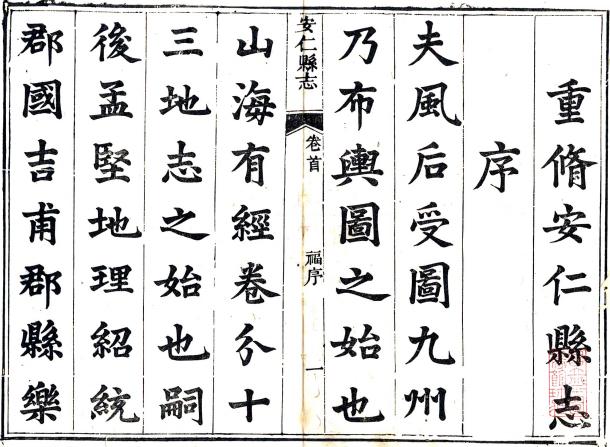 重脩安仁縣志
序
夫風后受圖九州
乃布輿圖之始也
安仁縣志
卷首
福序
一
山海有經卷分十
三地志之始也嗣
後孟堅地理紹統
郡國吉甫郡縣樂